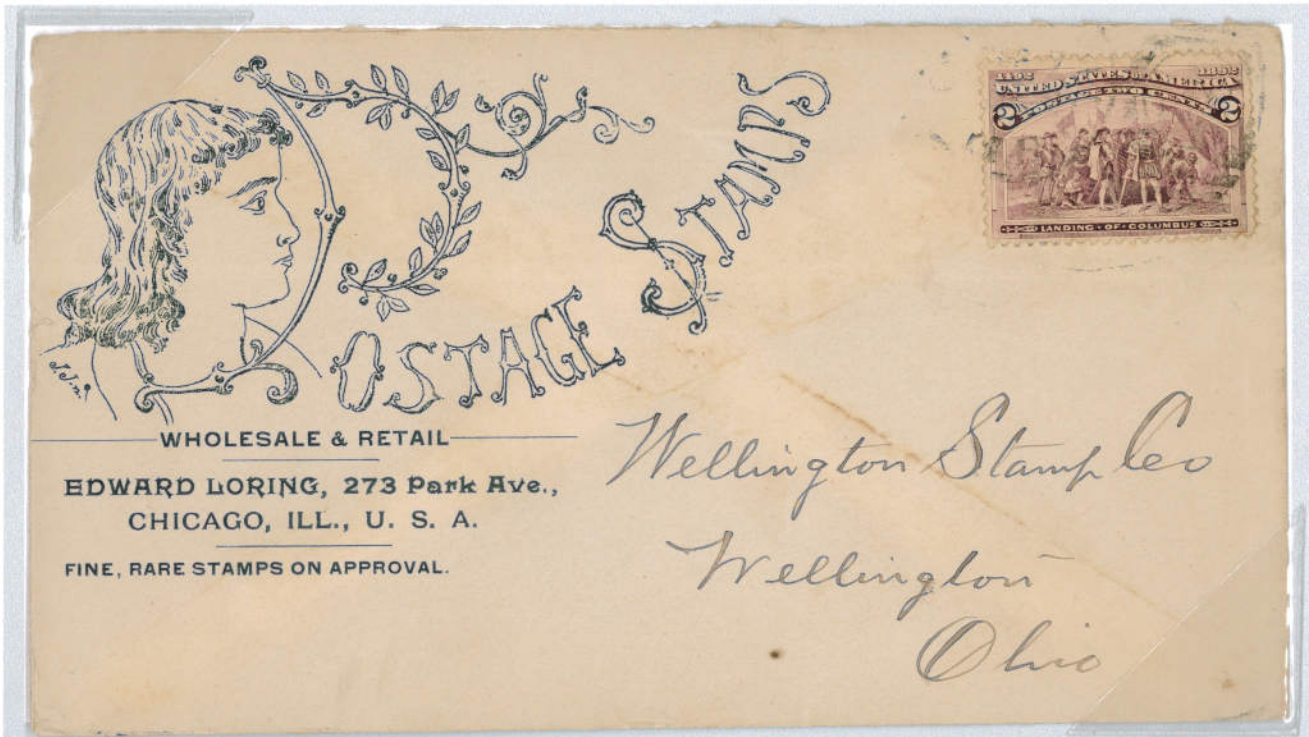 POSTAGE STAMPS
J.J.n.
WHOLESALE & RETAIL
EDWARD LORING, 273 Park Ave.,
CHICAGO, ILL., U. S. A.
FINE, RARE STAMPS ON APPROVAL.
1492 1892
UNITED STATES OF AMERICA
POSTAGE TWO CENTS
2 2
LANDING · OF · COLUMBUS
Wellington Stamp Co
Wellington
Ohio